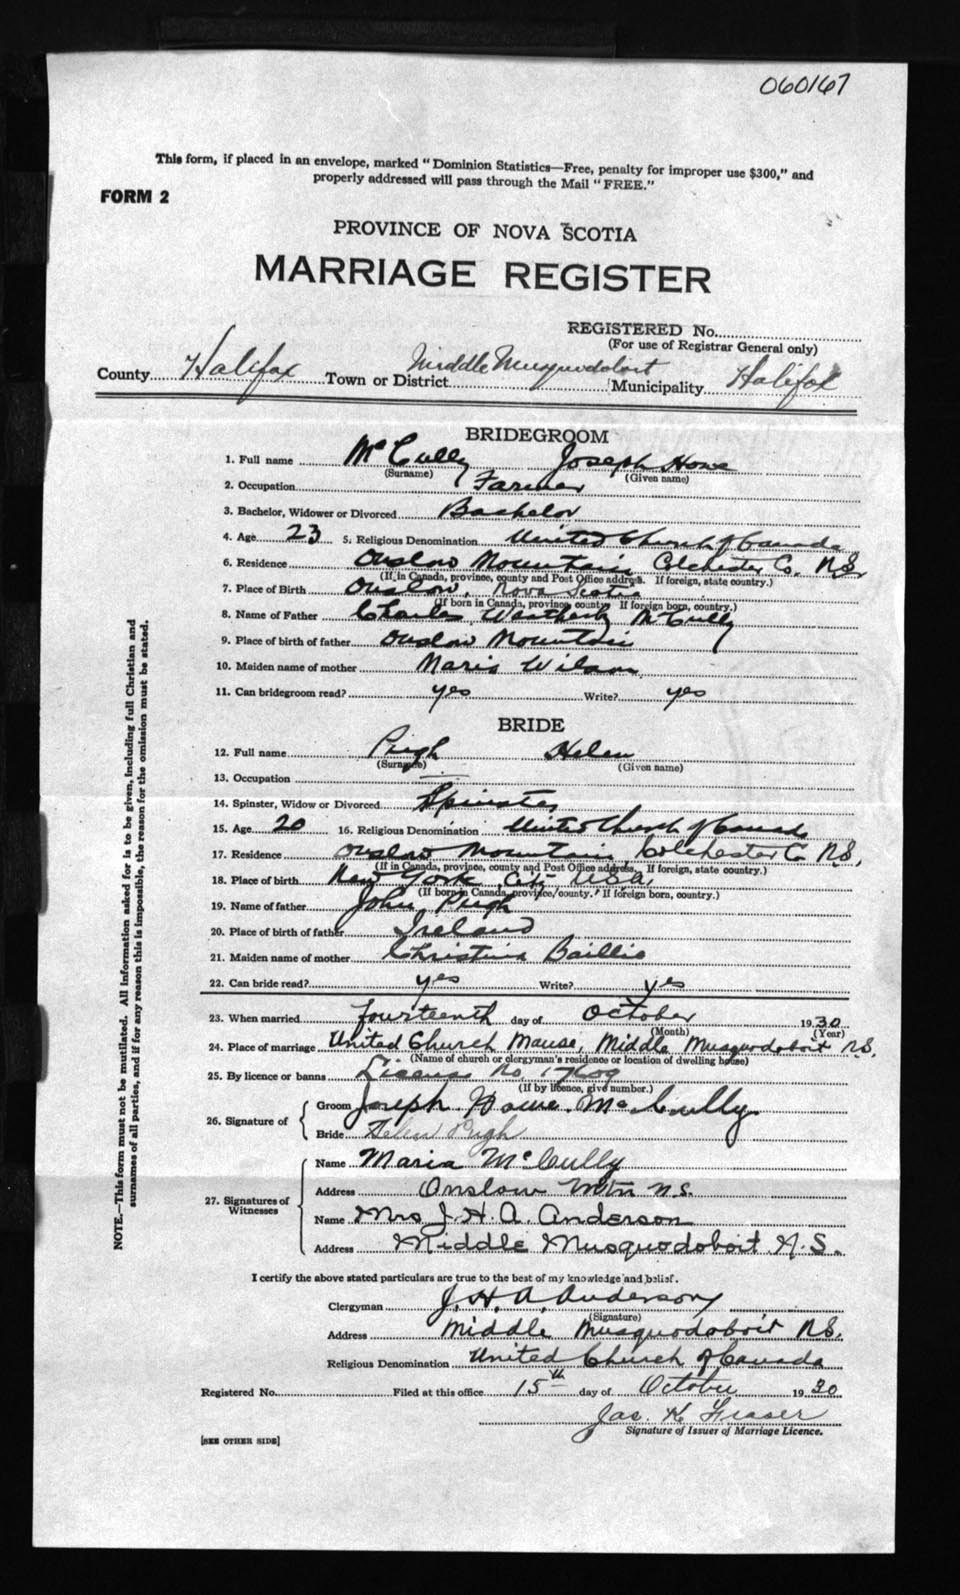 060167
This form, if placed in an envelope, marked "Dominion Statistics—Free, penalty for improper use $300," and
properly addressed will pass through the Mail "FREE."
FORM 2
PROVINCE OF NOVA SCOTIA
MARRIAGE REGISTER
REGISTERED No.
(For use of Registrar General only)
County Halifax Town or District Middle Musquodoboit Municipality Halifax
BRIDEGROOM
1. Full name McCully Joseph Howe
(Surname) (Given name)
2. Occupation Farmer
3. Bachelor, Widower or Divorced Bachelor
4. Age 23 5. Religious Denomination United Church of Canada
6. Residence Onslow Mountain Colchester Co. N.S.
(If in Canada, province, county and Post Office address. If foreign, state country.)
7. Place of Birth Onslow, Nova Scotia
(If born in Canada, province, county. If foreign born, country.)
8. Name of Father Charles Weatherby McCully
9. Place of birth of father Onslow Mountain
10. Maiden name of mother Maria Wilson
11. Can bridegroom read? yes Write? yes
BRIDE
12. Full name Pugh Helen
(Surname) (Given name)
13. Occupation —
14. Spinster, Widow or Divorced Spinster
15. Age 20 16. Religious Denomination United Church of Canada
17. Residence Onslow Mountain, Colchester Co N.S.
(If in Canada, province, county and Post Office address, If foreign, state country.)
18. Place of birth New York City U.S.A.
(If born in Canada, province/county. If foreign born, country.)
19. Name of father John Pugh
20. Place of birth of father Ireland
21. Maiden name of mother Christina Baillie
22. Can bride read? yes Write? yes
23. When married fourteenth day of October 1930
(Month) (Year)
24. Place of marriage United Church Manse, Middle Musquodoboit N.S.
(Name of church or clergyman's residence or location of dwelling house)
25. By licence or banns License No. 17609
(If by licence, give number.)
26. Signature of
Groom Joseph Howe McCully
Bride Helen Pugh
27. Signatures of Witnesses
Name Maria McCully
Address Onslow Mtn N.S.
Name Mrs J. H. A. Anderson
Address Middle Musquodoboit N.S.
I certify the above stated particulars are true to the best of my knowledge and belief.
Clergyman J. H. A. Anderson
(Signature)
Address Middle Musquodoboit N.S.
Religious Denomination United Church of Canada
Registered No. Filed at this office 15th day of October 1930
Jas. K Fraser
Signature of Issuer of Marriage Licence.
[SEE OTHER SIDE]
NOTE.—This form must not be mutilated. All information asked for is to be given, including full Christian and
surnames of all parties, and if for any reason this is impossible, the reason for the omission must be stated.